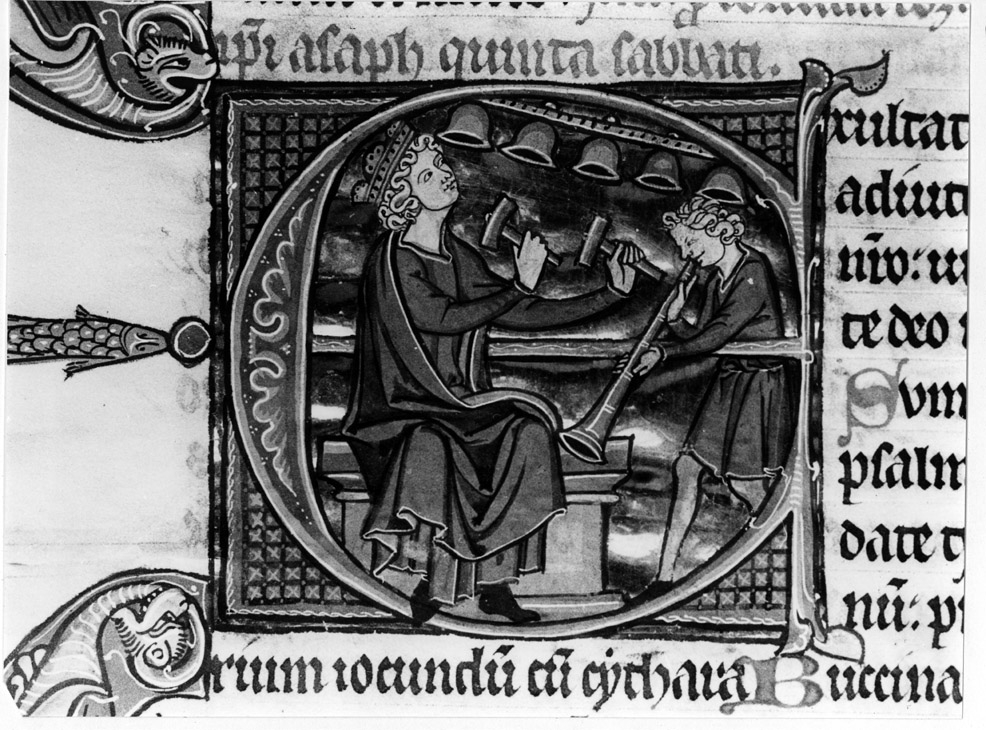 ip̄i asaph quinta sabbati.
Exultat
adiut
nr̄o: iu
te deo i
Sum
psalm
date t
nū: p
rium iocundū cū cythara Buccina